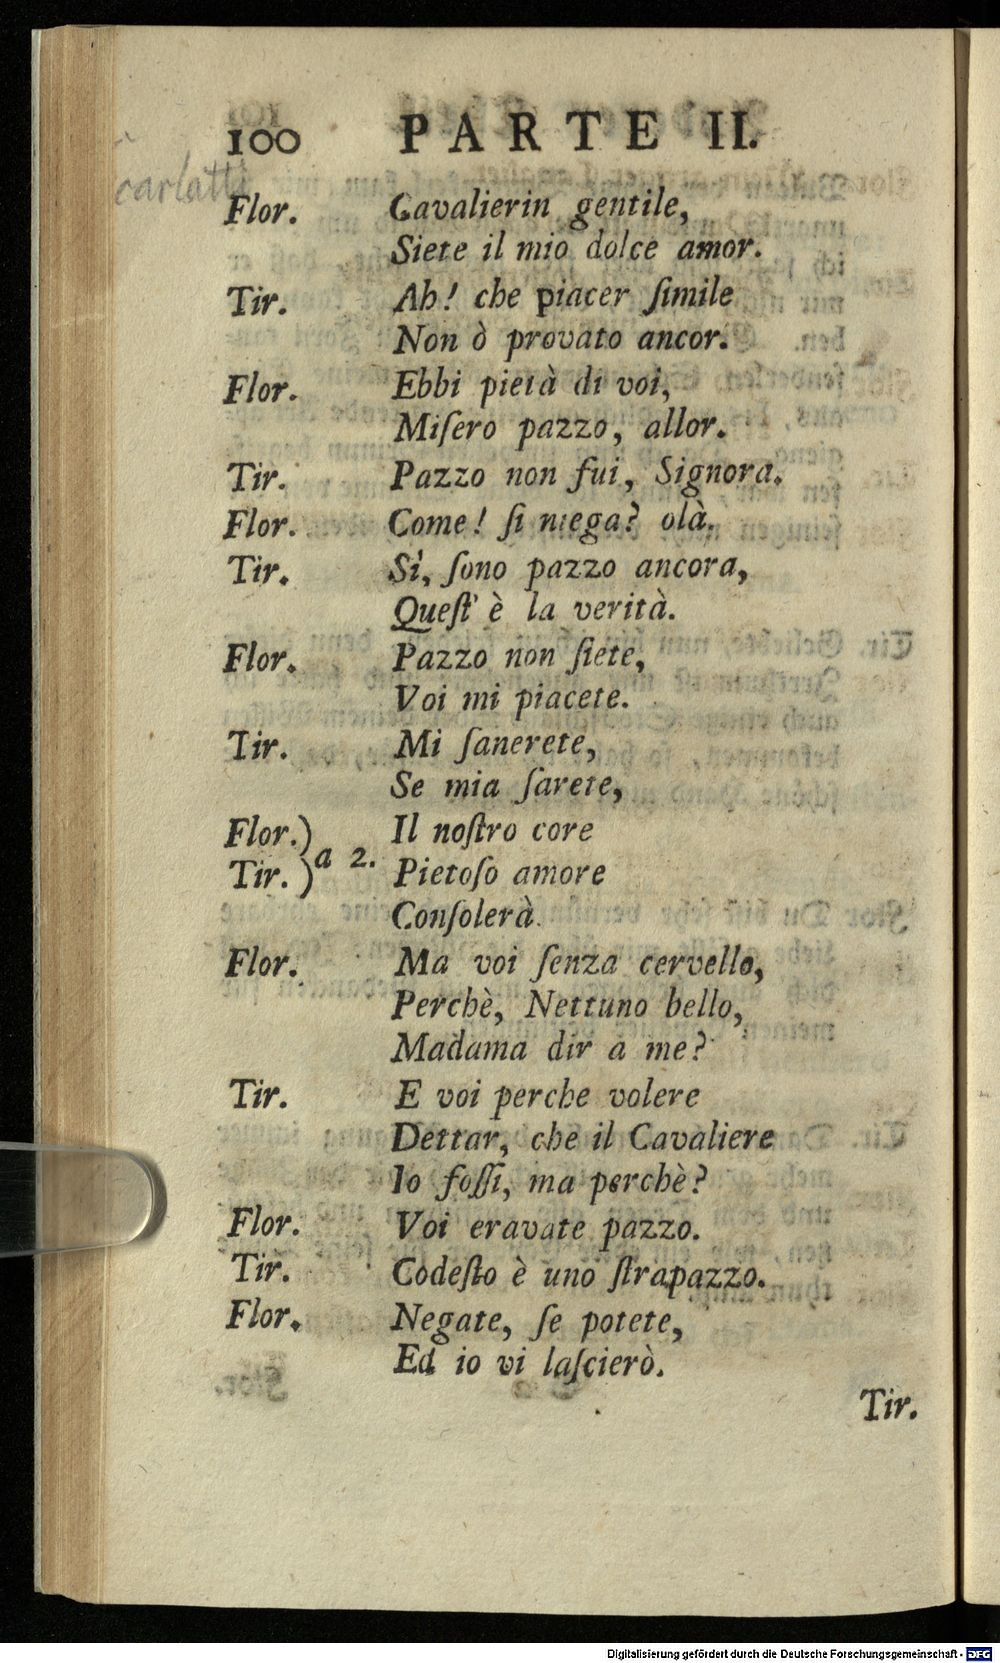 100 PARTE II.
carlatti
Flor. Cavalierin gentile,
Siete il mio dolce amor.
Tir. Ah! che piacer ſimile
Non ò provato ancor.
Flor. Ebbi pietà di voi,
Miſero pazzo, allor.
Tir. Pazzo non fui, Signora.
Flor. Come! ſi niega? olà.
Tir. Sì, ſono pazzo ancora,
Queſt' è la verità.
Flor. Pazzo non ſiete,
Voi mi piacete.
Tir. Mi ſanerete,
Se mia ſarete,
Flor.) Il noſtro core
a 2.
Tir. ) Pietoſo amore
Conſolerà.
Flor. Ma voi ſenza cervello,
Perchè, Nettuno bello,
Madama dir a me?
Tir. E voi perche volere
Dettar, che il Cavaliere
Io foſſi, ma perchè?
Flor. Voi eravate pazzo.
Tir. Codeſto è uno ſtrapazzo.
Flor. Negate, ſe potete,
Ed io vi laſcierò.
Tir.
Digitalisierung gefördert durch die Deutsche Forschungsgemeinschaft - DFG